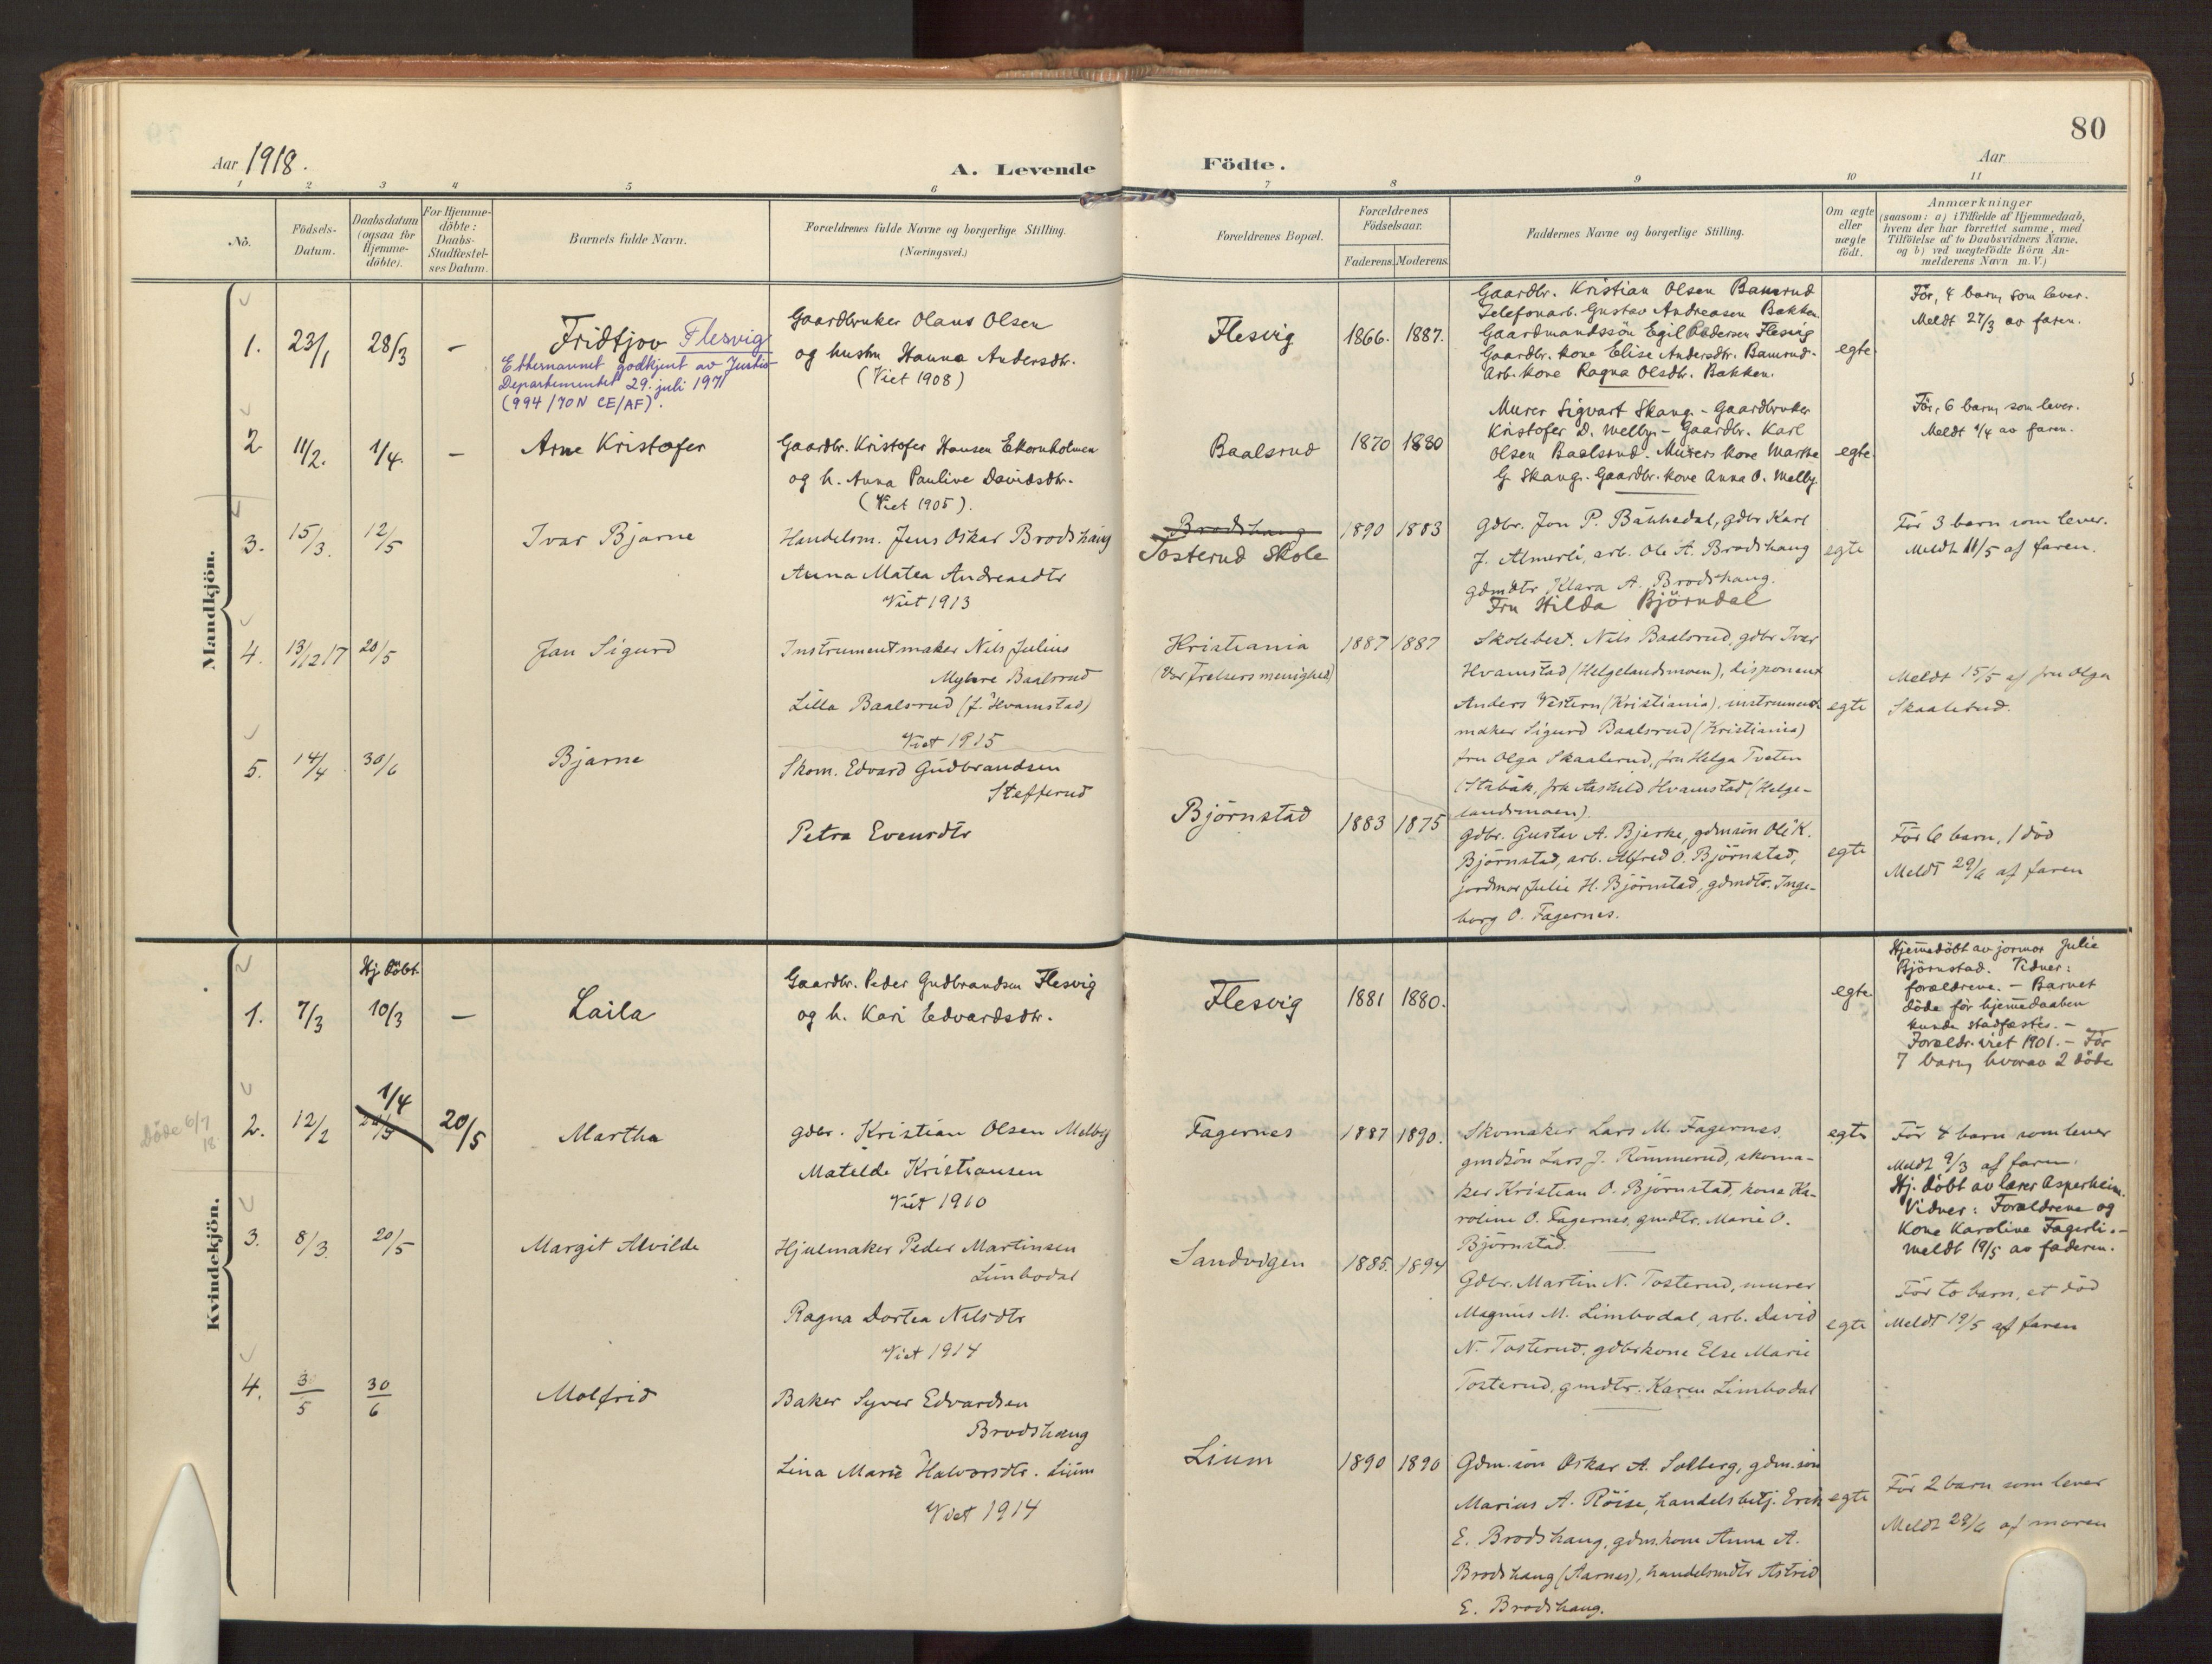 80
Aar 1918.
A. Levende Födte.
Aar
1 2 3 4 5 6 7 8 9 10 11
No.
Födsels-
Datum.
Daabsdatum
(ogsaa for
Hjemme-
döbte).
For Hjemme-
döbte:
Daabs-
Stadfæstel-
ses Datum.
Barnets fulde Navn.
Forældrenes fulde Navne og borgerlige Stilling.
(Næringsvei.)
Forældrenes Bopæl.
Forældrenes
Födselsaar.
Faderens. Moderens.
Faddernes Navne og borgerlige Stilling.
Om ægte
eller
uægte
födt.
Anmærkninger
(saasom: a) i Tilfælde af Hjemmedaab,
hvem der har forrettet samme, med
Tilföielse af to Daabsvidners Navne.
og b) ved uægtefödte Börn An-
melderens Navn m. V.)
Mandkjön.
1. 23/1 28/3 –
Fridtjov Flesvig
Etternavnet godkjent av Justis-
Departementet 29. juli 1971
(994/70N CE/AF).
Gaardbruker Olaus Olsen
og hustru Hanna Andersdtr.
(Viet 1908)
Flesvig 1866. 1887.
Gaardbr. Kristian Olsen Bamrud
Telefonarb. Gustav Andreasen Bakken
Gaardmandssön Egil Pedersen Flesvig
Gaardbr. kone Elise Andersdtr. Bamrud-
Arb. kone Ragna Olsdtr. Bakken.
egte.
För, 4 barn, som lever.
Meldt 27/3 av faren.
2 11/2. 1/4. –
Arne Kristofer
Gaardbr. Kristofer Hansen Ekornholmen
og h. Anna Pauline Davidsdtr.
(Viet 1905).
Baalsrud 1870 1880
Murer Sigvart Skaug. - Gaardbruker
Kristofer D. Melby. - Gaardbr. Karl
Olsen Baalsrud. Murers kone Marthe
G. Skaug. Gaardbr. kone Anna O. Melby.
egte.
För, 6 barn, som lever.
Meldt 1/4 av faren.
3. 15/3. 12/5
Ivar Bjarne
Handelsm. Jens Oskar Brodshaug
Anna Matea Andreasdtr
Viet 1913
Brodshaug
Tosterud Skole
1890 1883
Gdbr. Jon P. Bänhedal, gdbr Karl
J. Almerli, arb. Ole A. Brodshaug
gdmdtr Klara A. Brodshaug.
Fru Hilda Björndal
egte
För 3 barn som lever.
Meldt 11/5 af faren.
4. 13/12 17 20/5
Jan Sigurd
Instrumentmaker Nils Julius
Myhre Baalsrud
Lilla Baalsrud (f. Hvamstad)
Viet 1915
Kristiania
(Vor Frelsers menighed)
1887 1887
Skolebest. Nils Baalsrud, gdbr Ivar
Hvamstad (Helgelandsmoen), disponent
Anders Vestern (Kristiania), instrument-
maker Sigurd Baalsrud (Kristiania)
fru Olga Skaalerud, fru Helga Tveten
(Stabäk, frk Aashild Hvamstad (Helge-
landsmoen).
egte
Meldt 15/5 af fru Olga
Skaalerud.
5. 14/4 30/6
Bjarne
Skom. Edvard Gudbrandsen
Stefferud
Petra Evensdtr
Björnstad 1883 1875
Gdbr. Gustav A. Bjerke, gdmsön Ole K.
Björnstad, arb. Alfred O. Björnstad,
jordmor Julie H. Björnstad, gdmdtr. Inge-
borg O. Fagernes.
egte
För 6 barn, 1 död
Meldt 29/6 af faren
Kvindekjön.
1. 7/3 Hj. döbt 10/3 –
Laila
Gaardbr. Peder Gudbrandsen Flesvig
og h. Kari Edvardsdtr.
Flesvig 1881 1880.
egte.
Hjemmedöbt av jormor Julie
Björnstad. Vidner:
forældrene. - Barnet
döde för hjemmedaaben
kunde stadfæstes. -
Forældr. viet 1901. - För
7 barn, hvorav 2 döde
Döde 6/7
18
2. 12/2 1/4 20/5 20/5
Martha
gdbr. Kristian Olsen Melby
Matelde Kristiansen
Viet 1910
Fagernes 1887 1890.
Skomaker Lars M. Fagernes,
gmdsön Lars J. Rommerud, skoma-
ker Kristian O. Björnstad, kone Ka-
roline O. Fagernes, gmdtr. Marie O.
Björnstad
egte
För 4 barn som lever
Meldt 9/3 af faren.
Hj. döbt av lærer Asperheim.
Vidner: Forældrene og
Kone Karoline Fagerli. -
Meldt 19/5 av faderen.
3. 8/3. 20/5
Margit Alvilde
Hjulmaker Peder Martinsen
Limbodal
Ragna Dortea Nilsdtr
Viet 1914
Sandvigen 1885. 1894
Gdbr. Martin N. Tosterud, murer
Magnus M. Limbodal, arb. David
N. Tosterud, gdbrkone Else Marie
Tosterud, gmdtr. Karen Limbodal
egte
För to barn, et död
Meldt 19/5 af faren
4. 3/5 30/6
Molfrid
Baker Syver Edvardsen
Brodshaug
Lina Marie Halvorsdtr. Lium
Viet 1914
Lium 1890 1890
Gdm.sön Oskar A. Solberg, gdm.sön
Marius A. Röise, handelsbetj. Erik
E. Brodshaug, gdm.kone Anna A.
Brodshaug (Aarnes), handelsmdtr Astrid
E. Brodshaug.
egte
För 2 barn som lever
Meldt 29/6 af moren